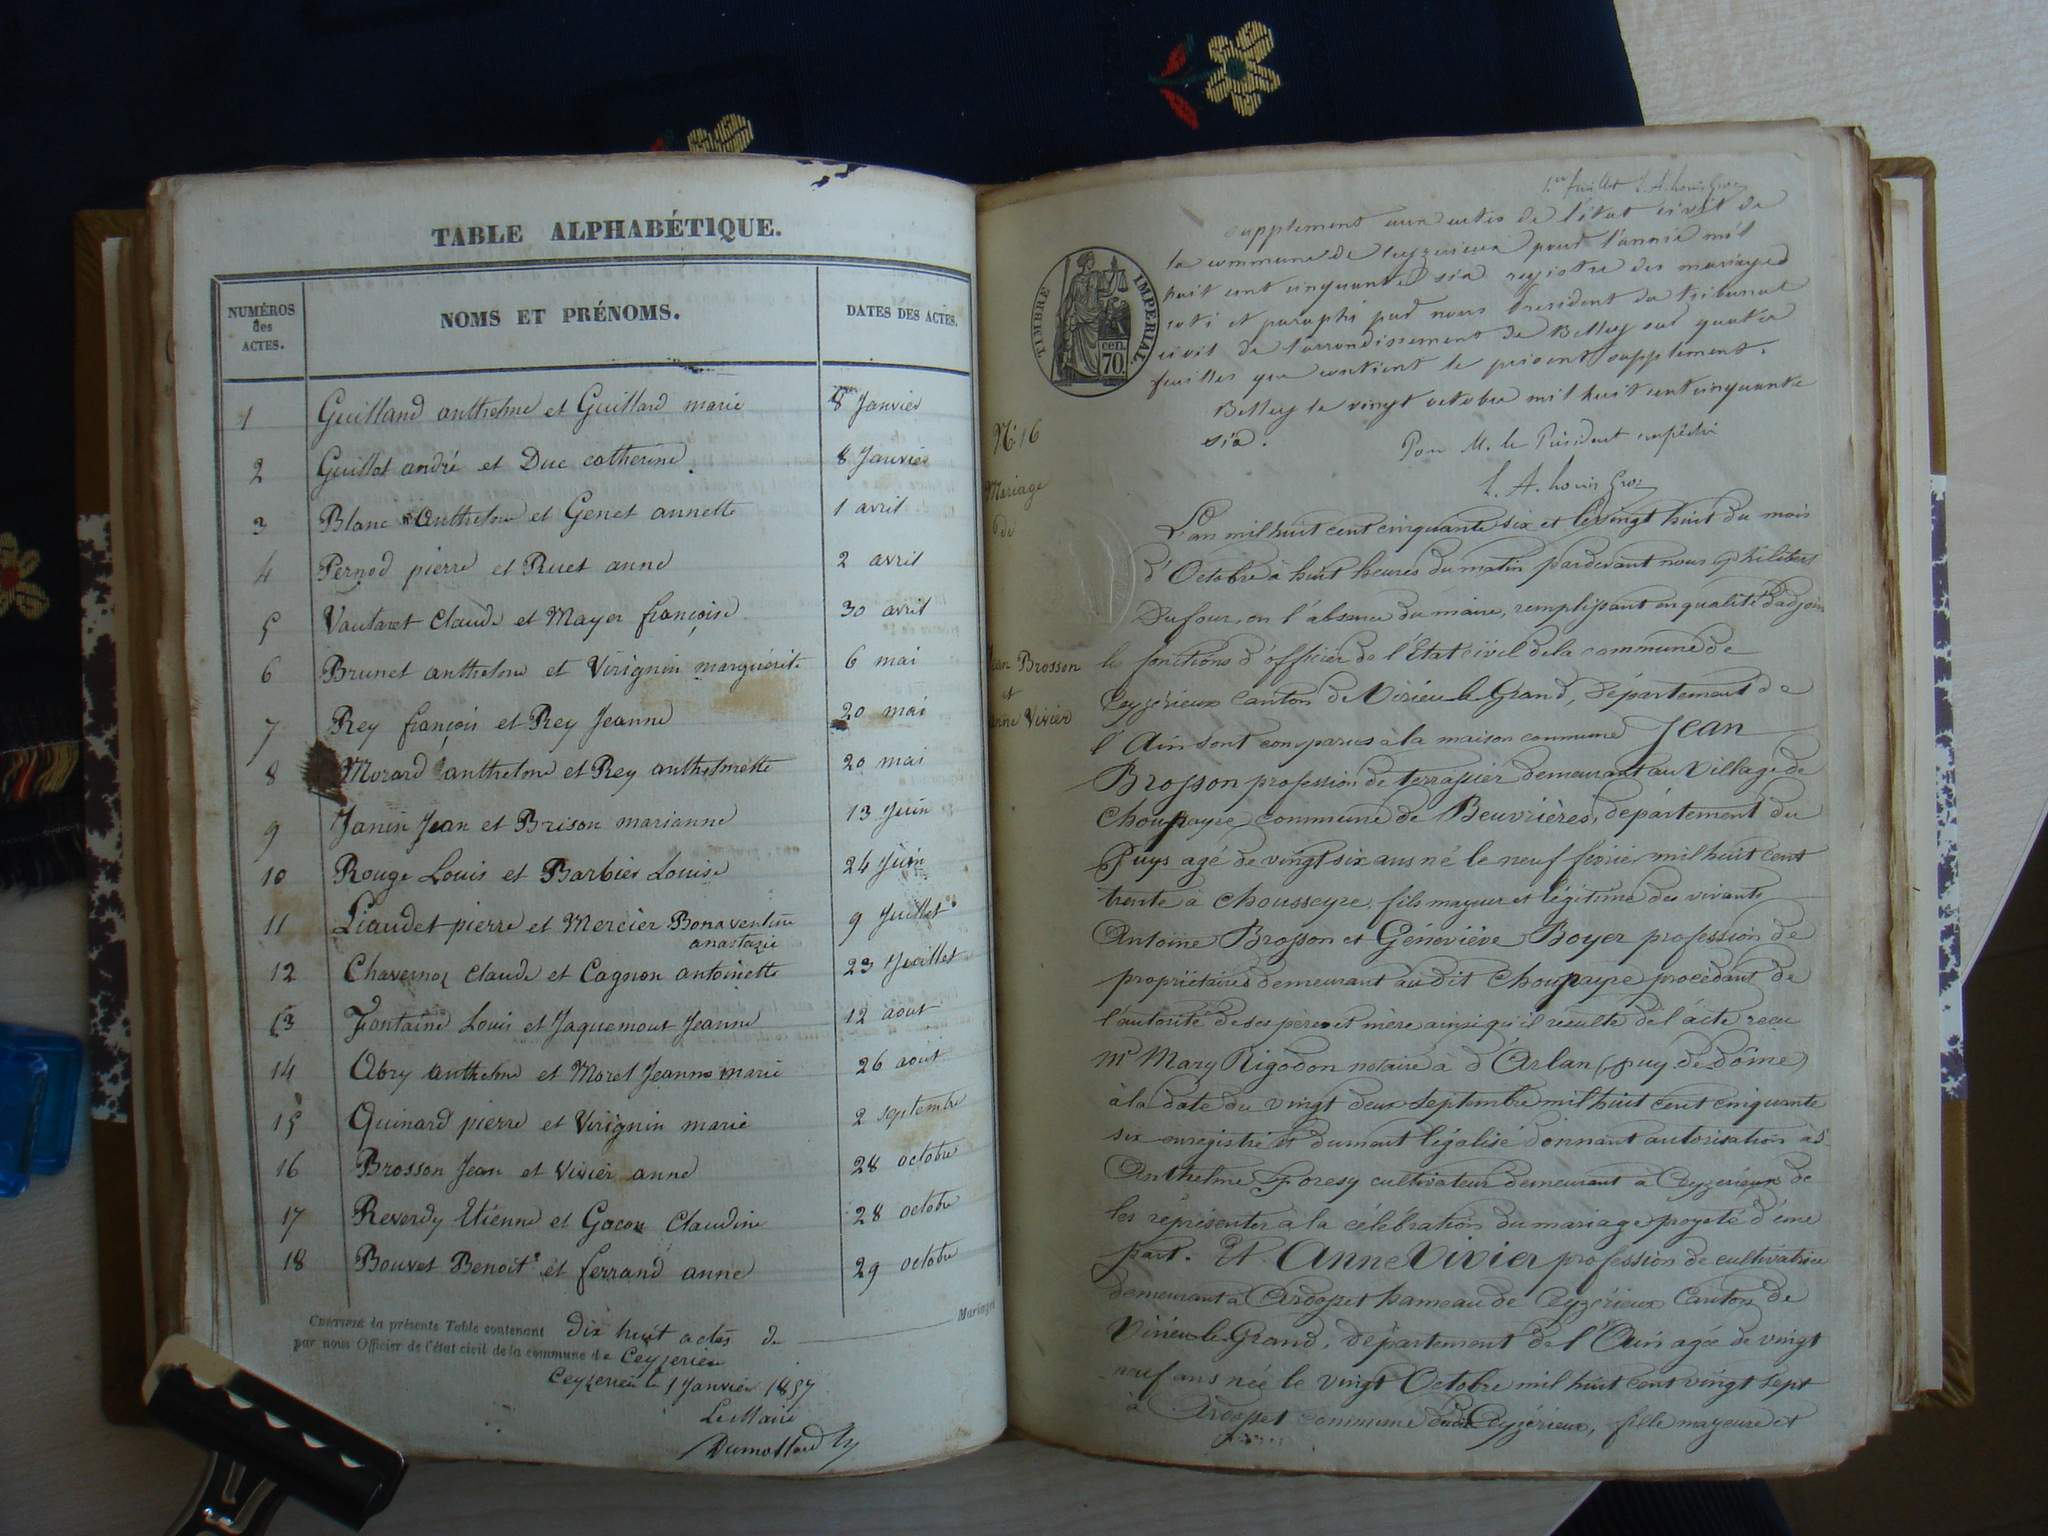 TABLE ALPHABÉTIQUE.
NUMÉROS des ACTES.
NOMS ET PRÉNOMS.
DATES DES ACTES.
1 Guilland anthelme et Guillard marie 8 Janvier
2 Guillot andré et Duc catherine 8 Janvier
3 Blanc Anthelme et Genet annette 1 avril
4 Pernod pierre et Ruet anne 2 avril
5 Vautaret Claude et Mayer françoise 30 avril
6 Brunet anthelme et Virignin marguérite 6 mai
7 Rey françois et Rey Jeanne 20 mai
8 Morard anthelme et Rey anthelmette 20 mai
9 Janin Jean et Brison marianne 13 Juin
10 Rouge Louis et Barbier Louise 24 Juin
11 Liaudet pierre et Mercier Bonaventure
anastazie 9 Juillet
12 Chavernoz Claude et Cagnon antoinette 23 Juillet
13 Fontaine Louis et Jaquemout Jeanne 12 aout
14 Abry anthelme et Moret Jeanne marie 26 aout
15 Quinard pierre et Virignin marie 2 septembre
16 Brosson Jean et Vivier anne 28 octobre
17 Reverdy Etienne et Gacon Claudine 28 octobre
18 Bouvet Benoit et ferrand anne 29 octobre
CERTIFIÉ la présente Table contenant dix huit actes de Mariages
par nous Officier de l'état civil de la commune de Ceyzerieu
Ceyzerieu le 1 Janvier 1857
Le Maire
Dumollard
1er feuillet L. A. Louis Gros
supplement aux actes de l'état civil de
la commune de Ceyzerieux pour l'année mil
huit cent cinquante six registre des mariages
coté et paraphé par nous President du tribunal
civil de l'arrondissement de Belley sur quatre
feuilles que contient le présent supplement.
Belley le vingt octobre mil huit cent cinquante
six.
Pour M. le Président empêché
L. A. Louis Gros
TIMBRE IMPERIAL
70 cen.
N° 16
Mariage
de
Jean Brosson
et
anne Vivier
L'an mil huit cent cinquante six et le vingt huit du mois
d'Octobre à huit heures du matin pardevant nous Philibert
Dufour, en l'absence du maire, remplissant en qualité d'adjoint
les fonctions d'officier de l'État civil de la commune de
Ceyzérieux canton de Virieu le Grand, département de
l'Ain sont comparus à la maison commune Jean
Brosson profession de terrassier demeurant au Village de
Choupayre commune de Beurrières, département du
Puys agé de vingt six ans né le neuf février mil huit cent
trente à Chousseyre, fils mayeur et légitime des vivants
Antoine Brosson et Géneviève Boyer profession de
propriétaires demeurant au dit Choupayre procédant de
l'autorité de ses père et mère ainsi qu'il resulte de l'acte recu
Me Mary Rigodon notaire à d'Arlan (puy de dôme)
à la date du vingt deux Septembre mil huit cent cinquante
six enregistré et dumant légalisé donnant autorisation à Sr
Anthelme Foresy cultivateur demeurant à Ceyzerieux de
les représenter à la célébration du mariage proyeté d'une
part. Et Anne Vivier profession de cultivatrice
demeurant à Ardosset hameau de Ceyzérieux Canton de
Virieu le Grand, département de l'Ain agée de vingt
neuf ans née le vingt Octobre mil huit cent vingt sept
à Ardosset commune de Ceyzérieux, fille mayeure et